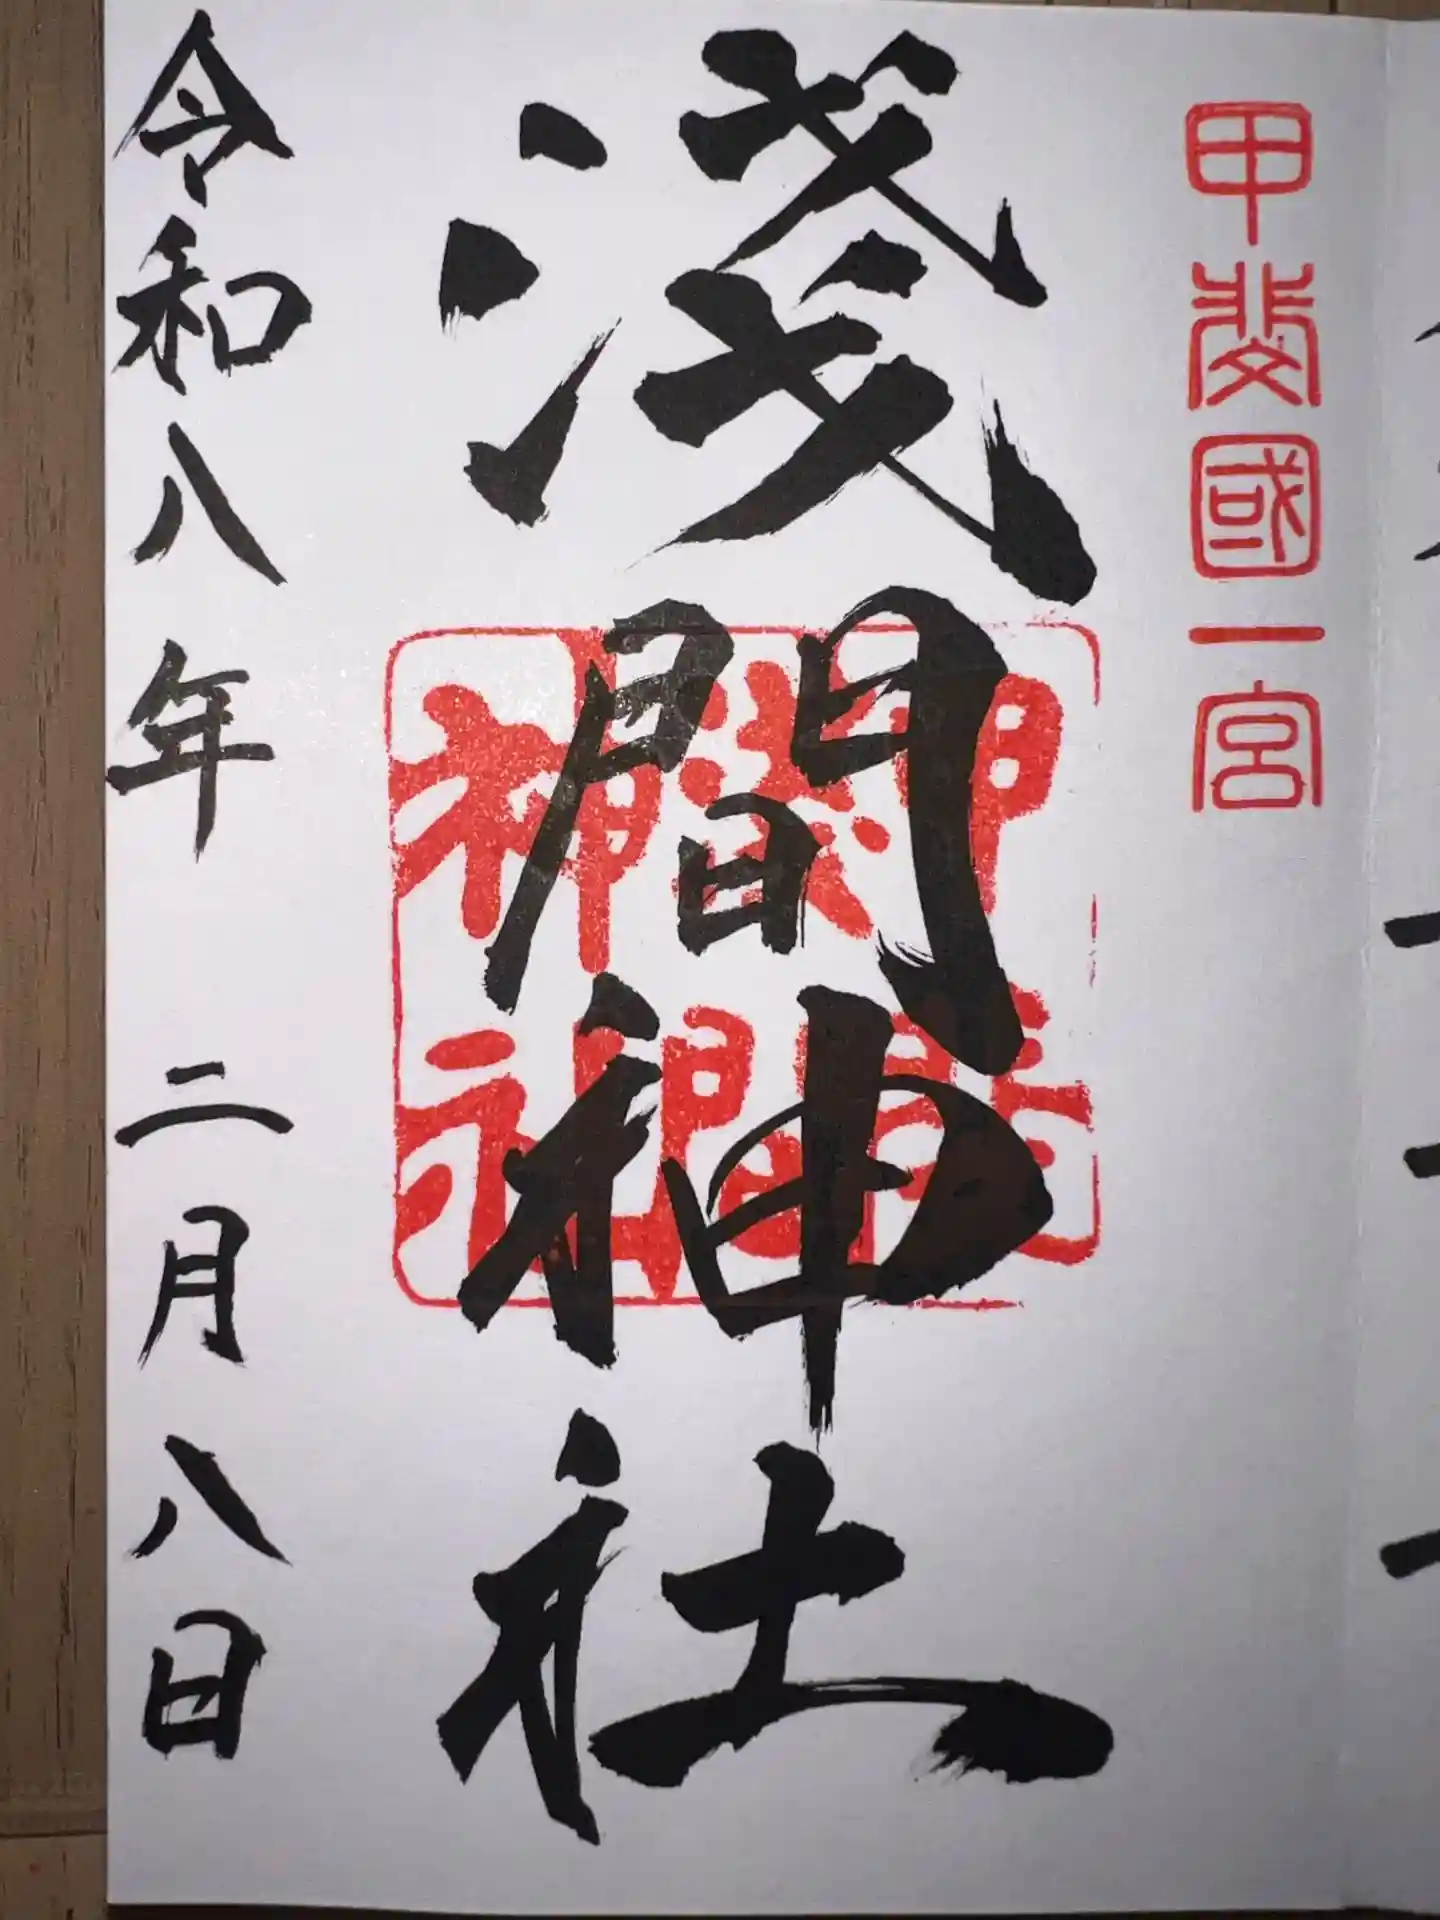 甲斐國一宮
淺間神社
令和八年 二月八日